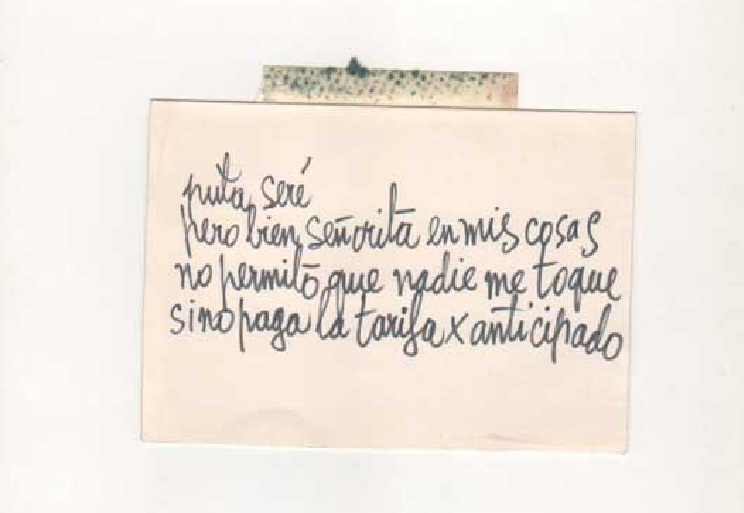 puta seré
pero bien señorita en mis cosas
no permito que nadie me toque
si no paga la tarifa x anticipado